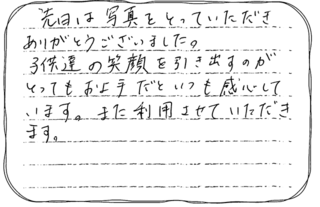 先日は写真をとっていただき
ありがとうございました。
子供達の笑顔を引き出すのが
とってもお上手だといつも感心して
います。また利用させていただき
ます。